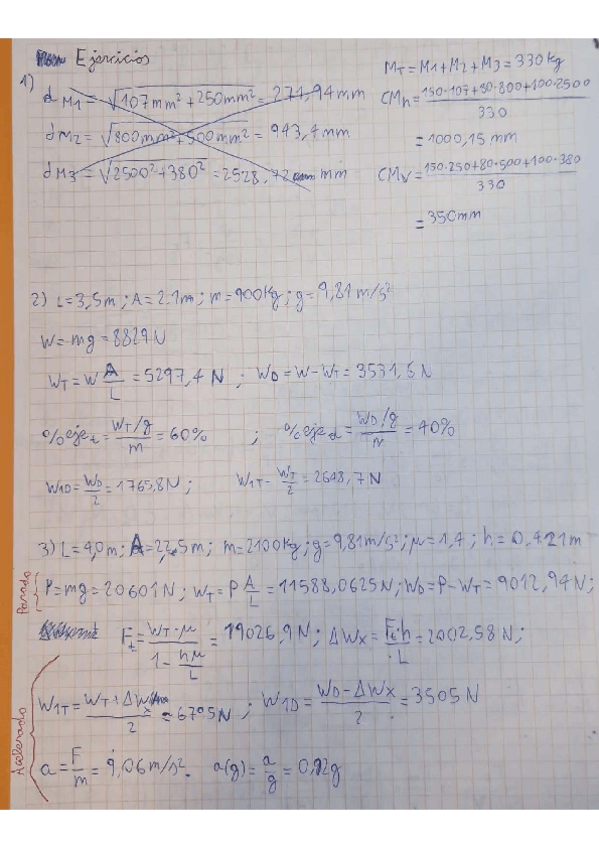 Ejercicios
1)
d M1 = √107mm² + 250mm² = 271,94mm
dM2 = √800mm² + 500mm² = 943,4mm
dM3 = √2500² + 380² = 2528,72 mm
MT = M1 + M2 + M3 = 330kg
CMh = 150·107 + 80·800 + 100·2500 / 330
= 1000,15 mm
CMv = 150·250 + 80·500 + 100·380 / 330
= 350mm
2) L = 3,5m ; A = 2.1m ; m = 900kg ; g = 9,81 m/s²
W = mg = 8829N
WT = W A/L = 5297,4 N ; WD = W - WT = 3531,6N
% eje t = WT/g / m = 60% ; % eje d = WD/g / m = 40%
W1D = WD/2 = 1765,8N ; W1T = WT/2 = 2648,7N
3) L = 4,0m ; A = 22,5m ; m = 2100kg ; g = 9,81m/s² ; μ = 1,4 ; h = 0,421m
Parado
P = mg = 20601N ; WT = P A/L = 11588,0625N ; WD = P - WT = 9012,94N ;
Ft = WT·μ / 1 - hμ/L = 19026,9N ; ΔWx = Ft·h / L = 2002,58N ;
Acelerado
W1T = WT + ΔWx / 2 = 6795N ; W1D = WD - ΔWx / 2 = 3505N
a = F/m = 9,06m/s². a(g) = a/g = 0,92g